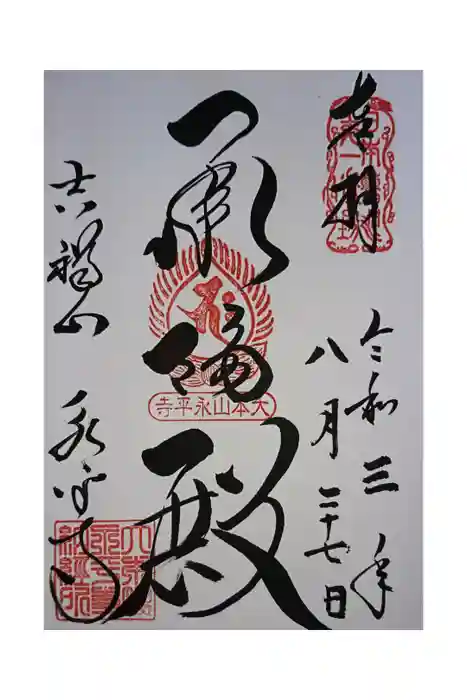 奉拝
令和三年
八月二十七日
承陽殿
大本山永平寺
吉祥山 永平寺